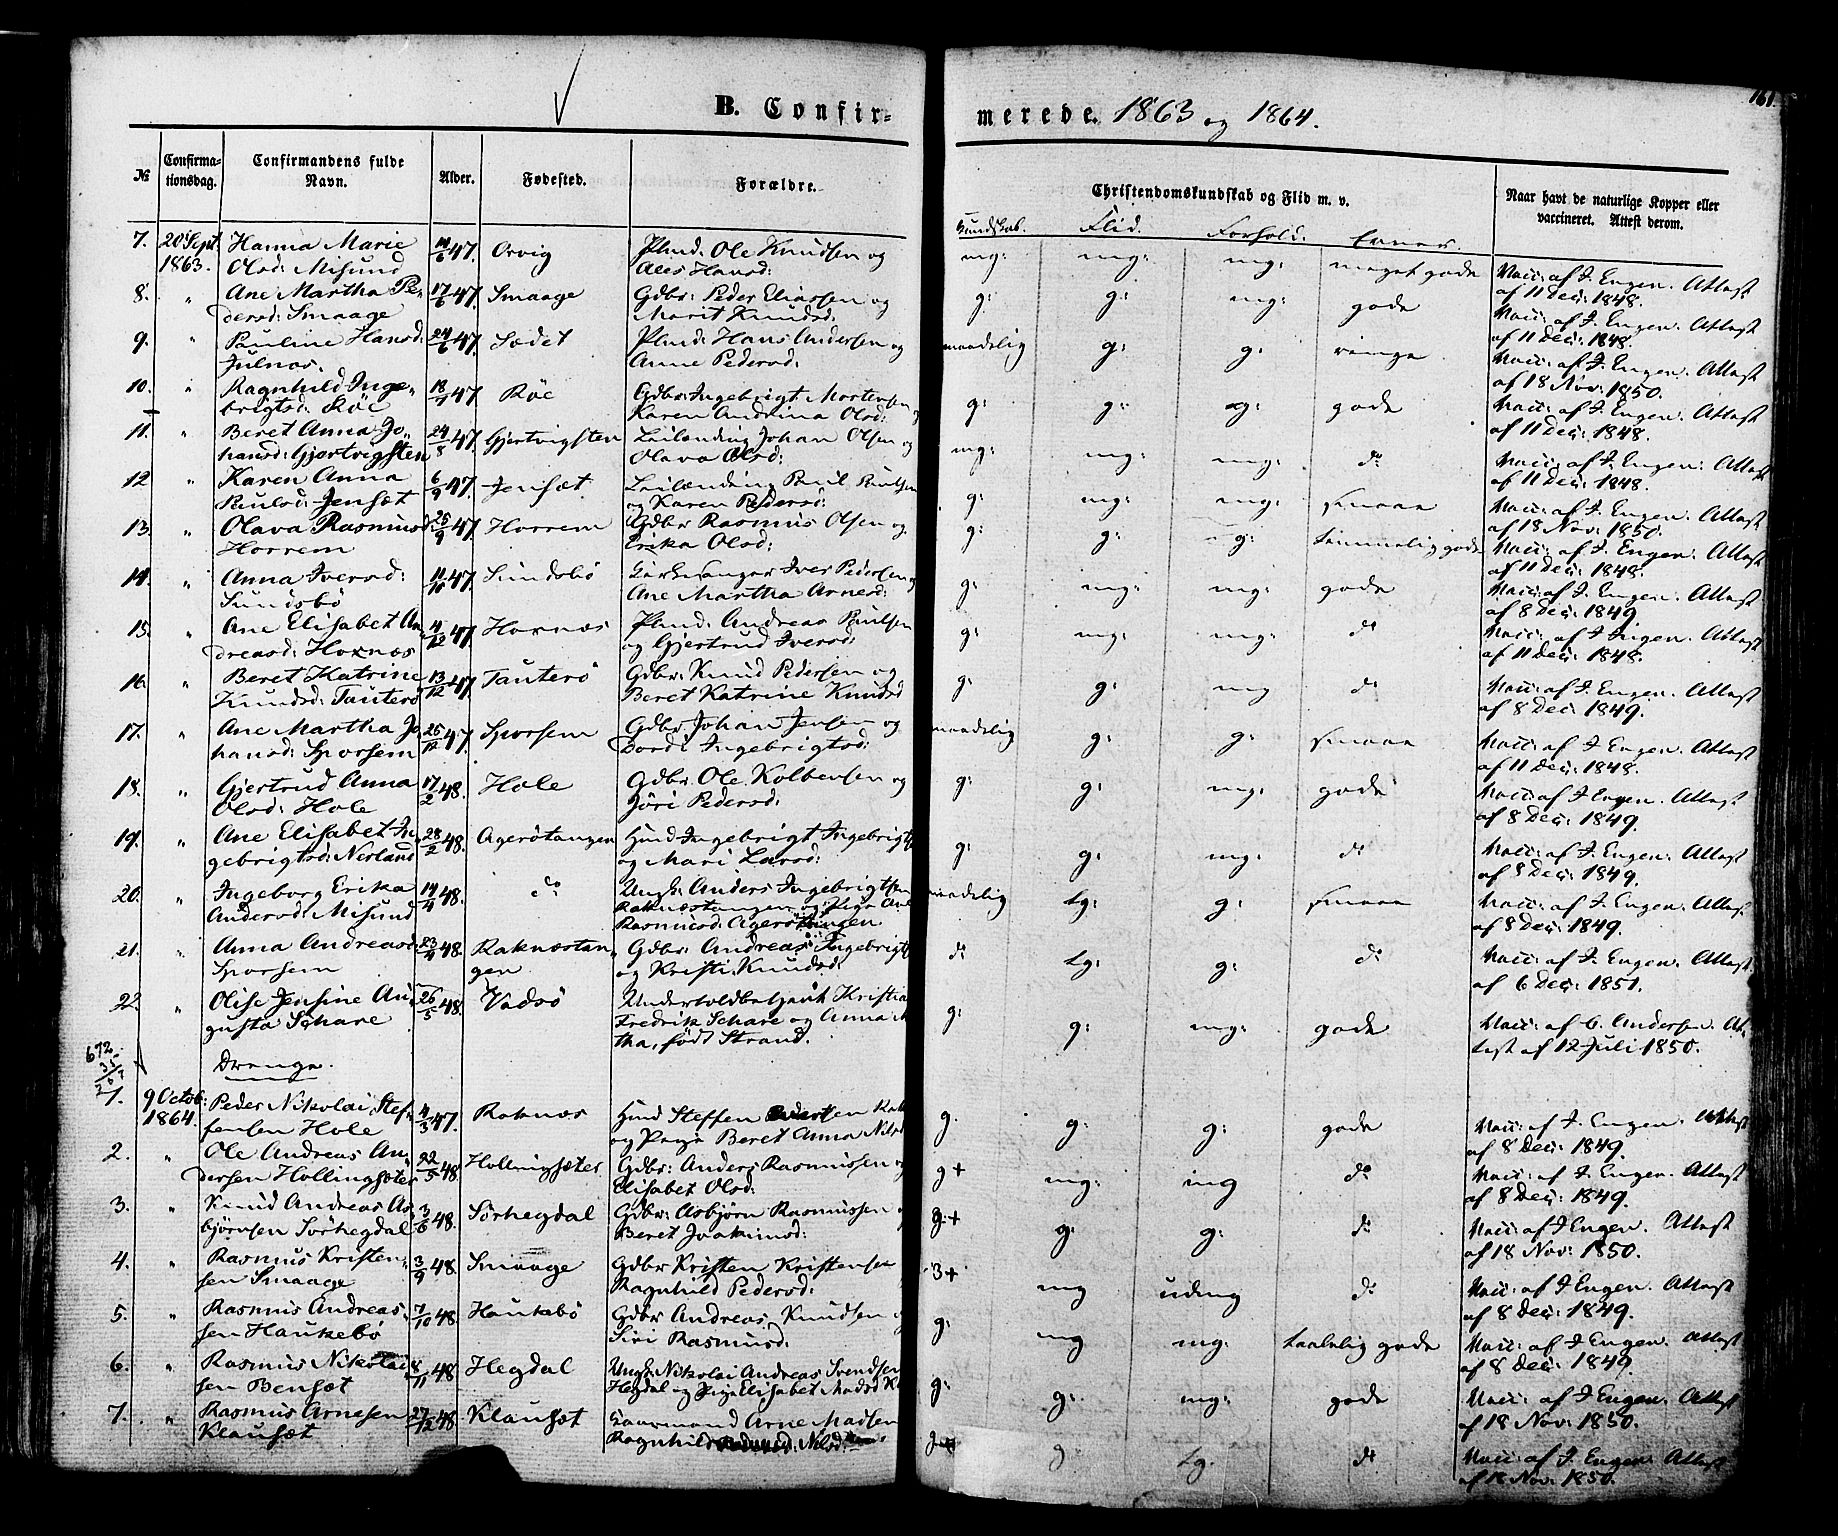 161.
B. Confir-
merede. 1863 og 1864.
№
Confirma-
tionsdag.
Confirmandens fulde
Navn.
Alder.
Fødested.
Forældre.
Christendomskundskab og Flid m. v.
Naar havt de naturlige Kopper eller
vaccineret. Attest derom.
Kundskab. Flid. Forhold. Evner.
7. 20 Sept. Hanna Marie 10/6 47. Orvig Plmd: Ole Knudsen og mg: mg: mg: meget gode Vacc: af J. Engen. Attest
1863. Olsd: Misund Ales Hansd: af 11 Dec: 1848.
8. " Ane Martha Pe- 17/6 47. Smaage Gdbr: Peder Eliassen og g: g: mg: gode Vacc: af J. Engen. Attest
dersd: Smaage Marit Knudsd: af 11 Dec: 1848.
9. " Pauline Hansd: 24/6 47. Sædet Plmd: Hans Andersen og maadelig g: g: ringe Vacc: af J. Engen. Attest
Julnæs. Anne Pedersd: af 18 Nov: 1850.
10. " Ragnhild Inge- 18/7 47 Røe Gdbr: Ingebrigt Mortensen g: g: g: gode Vacc: af J. Engen. Attest
brigtsd: Røe Karen Andrina Olsd: af 11 Dec: 1848.
11. " Beret Anna Jo- 24/8 47. Gjertvigsten Leilænding Johan Olsen og mg: mg: mg: do Vacc: af J. Engen. Attest
hansd: Gjertvigsten Olava Olsd: af 11 Dec: 1848.
12 " Karen Anna 6/9 47. Jensæt Leilænding Paul Paulsen g: mg: mg: smaae Vacc: af J. Engen. Attest
Paulsd: Jensæt og Karen Pedersd: af 18 Nov: 1850.
13. " Olava Rasmusd: 25/9 47 Horrem Gdbr: Rasmus Olsen og g: g: g: temmelig gode Vacc: af J. Engen. Attest
Horrem Erika Olsd: af 11 Dec: 1848.
14. " Anna Iversd: 11/10 47. Sundsbø Kirkesanger Iver Pedersen g: mg: mg: gode Vacc: af J. Engen. Attest
Sundsbø Ane Martha Arnesd: af 8 Dec: 1849.
15. " Ane Elisabet An- 4/12 47. Hoxnæs Plmd: Andreas Paulsen g: mg: mg: do Vacc: af J. Engen. Attest
dreasd: Hoxnæs og Gjertrud Iversd: af 11 Dec: 1848.
16. " Beret Katrine 13/12 47. Tauterø Gdbr: Knud Pedersen og g: g: mg do Vacc: af J. Engen. Attest
Knudsd: Tauterø Beret Katrine Knudsd af 8 Dec: 1849.
17. " Ane Martha Jo 25/12 47. Sporsem Gdbr: Johan Jensen og maadelig g: g: smaae Vacc: af J. Engen. Attest
hansd: Sporsem Dordi Ingebrigtsd: af 11 Dec: 1848.
18. " Gjertrud Anna 17/2 48. Hole Gdbr: Ole Kolbensen og g: g: mg: gode Vacc: af J. Engen. Attest
Olsd: Hole Jöri Pedersd: af 8 Dec: 1849.
19. " Ane Elisabet In 28/2 48. Agerøtangen Hmd Ingebrigt Ingebrigts g: g: mg: do Vacc: af J. Engen. Attest
gebrigtsd: Nerland og Mari Larsd: af 8 Dec: 1849.
20. " Ingeborg Erika 14/4 48. do Ungk: Anders Ingebrigtsen maadelig tg: g: smaae Vacc: af J. Engen. Attest
Andersd: Misund Raknæstangen og Pige Ane af 8 Dec: 1849.
Rasmusd: Agerøtangen
21. " Anna Andreasd 23/4 48. Raknæstan- Gdbr: Andreas Ingebrigts do tg: g: do Vacc: af J. Engen. Attest
Sporsem gen og Kristi Knudsd: af 6 Dec: 1851.
22. " Olise Jensine Au- 26/5 48. Vadsø Undertoldbetjent Kristia g: g: mg: gode Vacc: af C. Andersen. At-
gusta Schare Fredrik Schare og Anna M test af 12 Juli 1850.
tha, født Strand.
672
35
Drenge.
1. 9 Octob: Peder Nikolai Stef- 4/3 47. Raknæs Hmd Steffen g. g: g: gode Vacc: af J. Engen. Attest
1864. fensen Hole og Pige Beret Anna Nilsd af 8 Dec: 1849.
2. " Ole Andreas An- 22/5 48. Hollingsæter Gdbr: Anders Rasmussen og g+ mg: mg do Vacc: af J. Engen. Attest
dersen Hollingsæter Elisabet Olsd: af 8 Dec: 1849.
3. " Knud Andreas As- 3/6 48. Sørhegdal Gdbr: Asbjørn Rasmussen g:+ g: g: do Vacc: af J. Engen. Attest
bjørnsen Sørhegdal Beret Joakimsd: af 18 Nov: 1850.
4. " Rasmus Kristen- 3/9 48. Smaage Gdbr Kristen Kristensen 3+ mg udmg do Vacc: af J. Engen. Attest
sen Smaage Ragnhild Pedersd: af 8 Dec: 1849.
5. " Rasmus Andreas- 7/10 48. Haukebø Gdbr Andreas Knudsen g: mg mg: taalelig gode Vacc: af J. Engen. Attest
sen Haukebø Siri Rasmusd: af 8 Dec: 1849.
6. " Rasmus Nikolai 8/11 48. Hegdal Ungk: Nikolai Andreas Svendsen g: g: mg: gode Vacc: af J. Engen. Attest
sen Bensæt Hegdal og Pige Elisabet Madsd af 18 Nov: 1850.
7. " Rasmus Arnesen 27/12 48. Klausæt Gaarmand Arne Madsen g g tg. do Vacc: af J. Engen. Attest
Klausæt Ragnhild Nilsd: af 18 Nov: 1850.